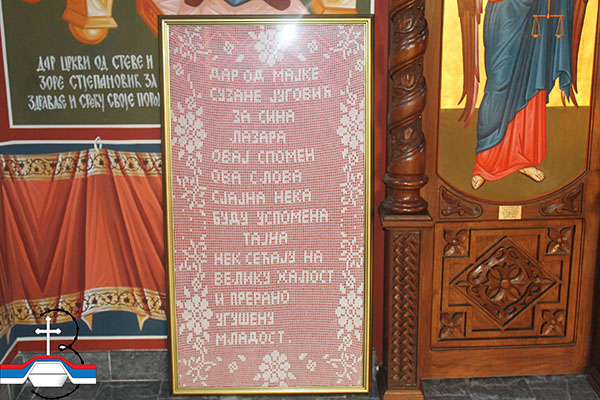 ДАР ЦРКВИ ОД СТЕВЕ И
ЗОРЕ СТЈЕПАНОВИЋ ЗА
ЗДРАВЉЕ И СРЕЋУ СВОЈЕ
ДАР ОД МАЈКЕ
СУЗАНЕ ЈУГОВИЋ
ЗА СИНА
ЛАЗАРА
ОВАЈ СПОМЕН
ОВА СЛОВА
СЈАЈНА НЕКА
БУДУ УСПОМЕНА
ТАЈНА
НЕК СЕЋАЈУ НА
ВЕЛИКУ ЖАЛОСТ
И ПРЕРАНО
УГУШЕНУ
МЛАДОСТ.